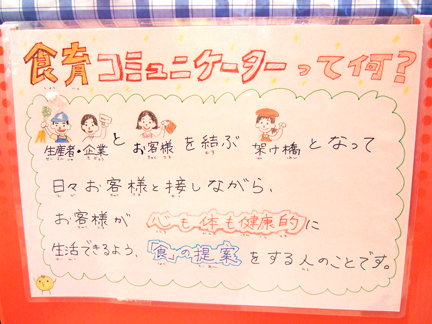 食育コミュニケーターって何？
生産者・企業とお客様を結ぶ架け橋となって
日々お客様と接しながら、
お客様が心も体も健康的に
生活できるよう、「食」の提案をする人のことです。